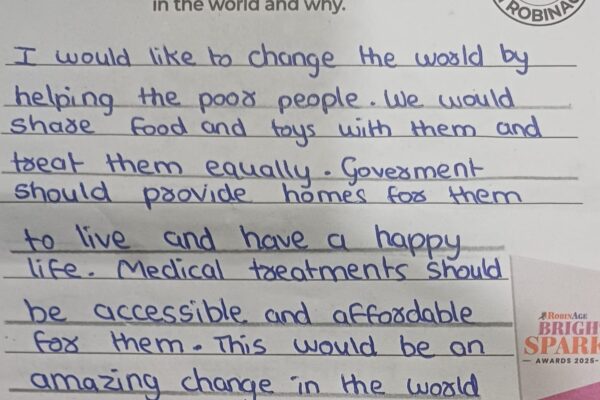 in the world and why.
ROBINAG
I would like to change the world by
helping the poor people. We would
share food and toys with them and
treat them equally. Goverment
should provide homes for them
to live and have a happy
life. Medical treatments should
be accessible and affordable
for them. This would be an
amazing change in the world
ROBINAGE
BRIGH
SPARK
AWARDS 2025-